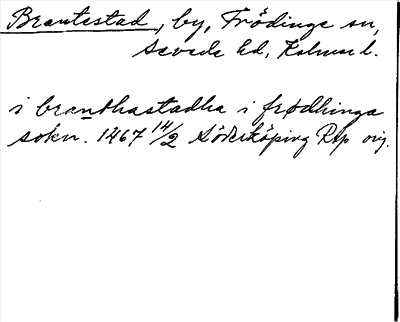 Brantestad, by, Frödinge sn,
Sevede hd, Kalmar l.
i branthastadha i frødhinga
sokn. 1467 14/2 Söderköping Rap orig.